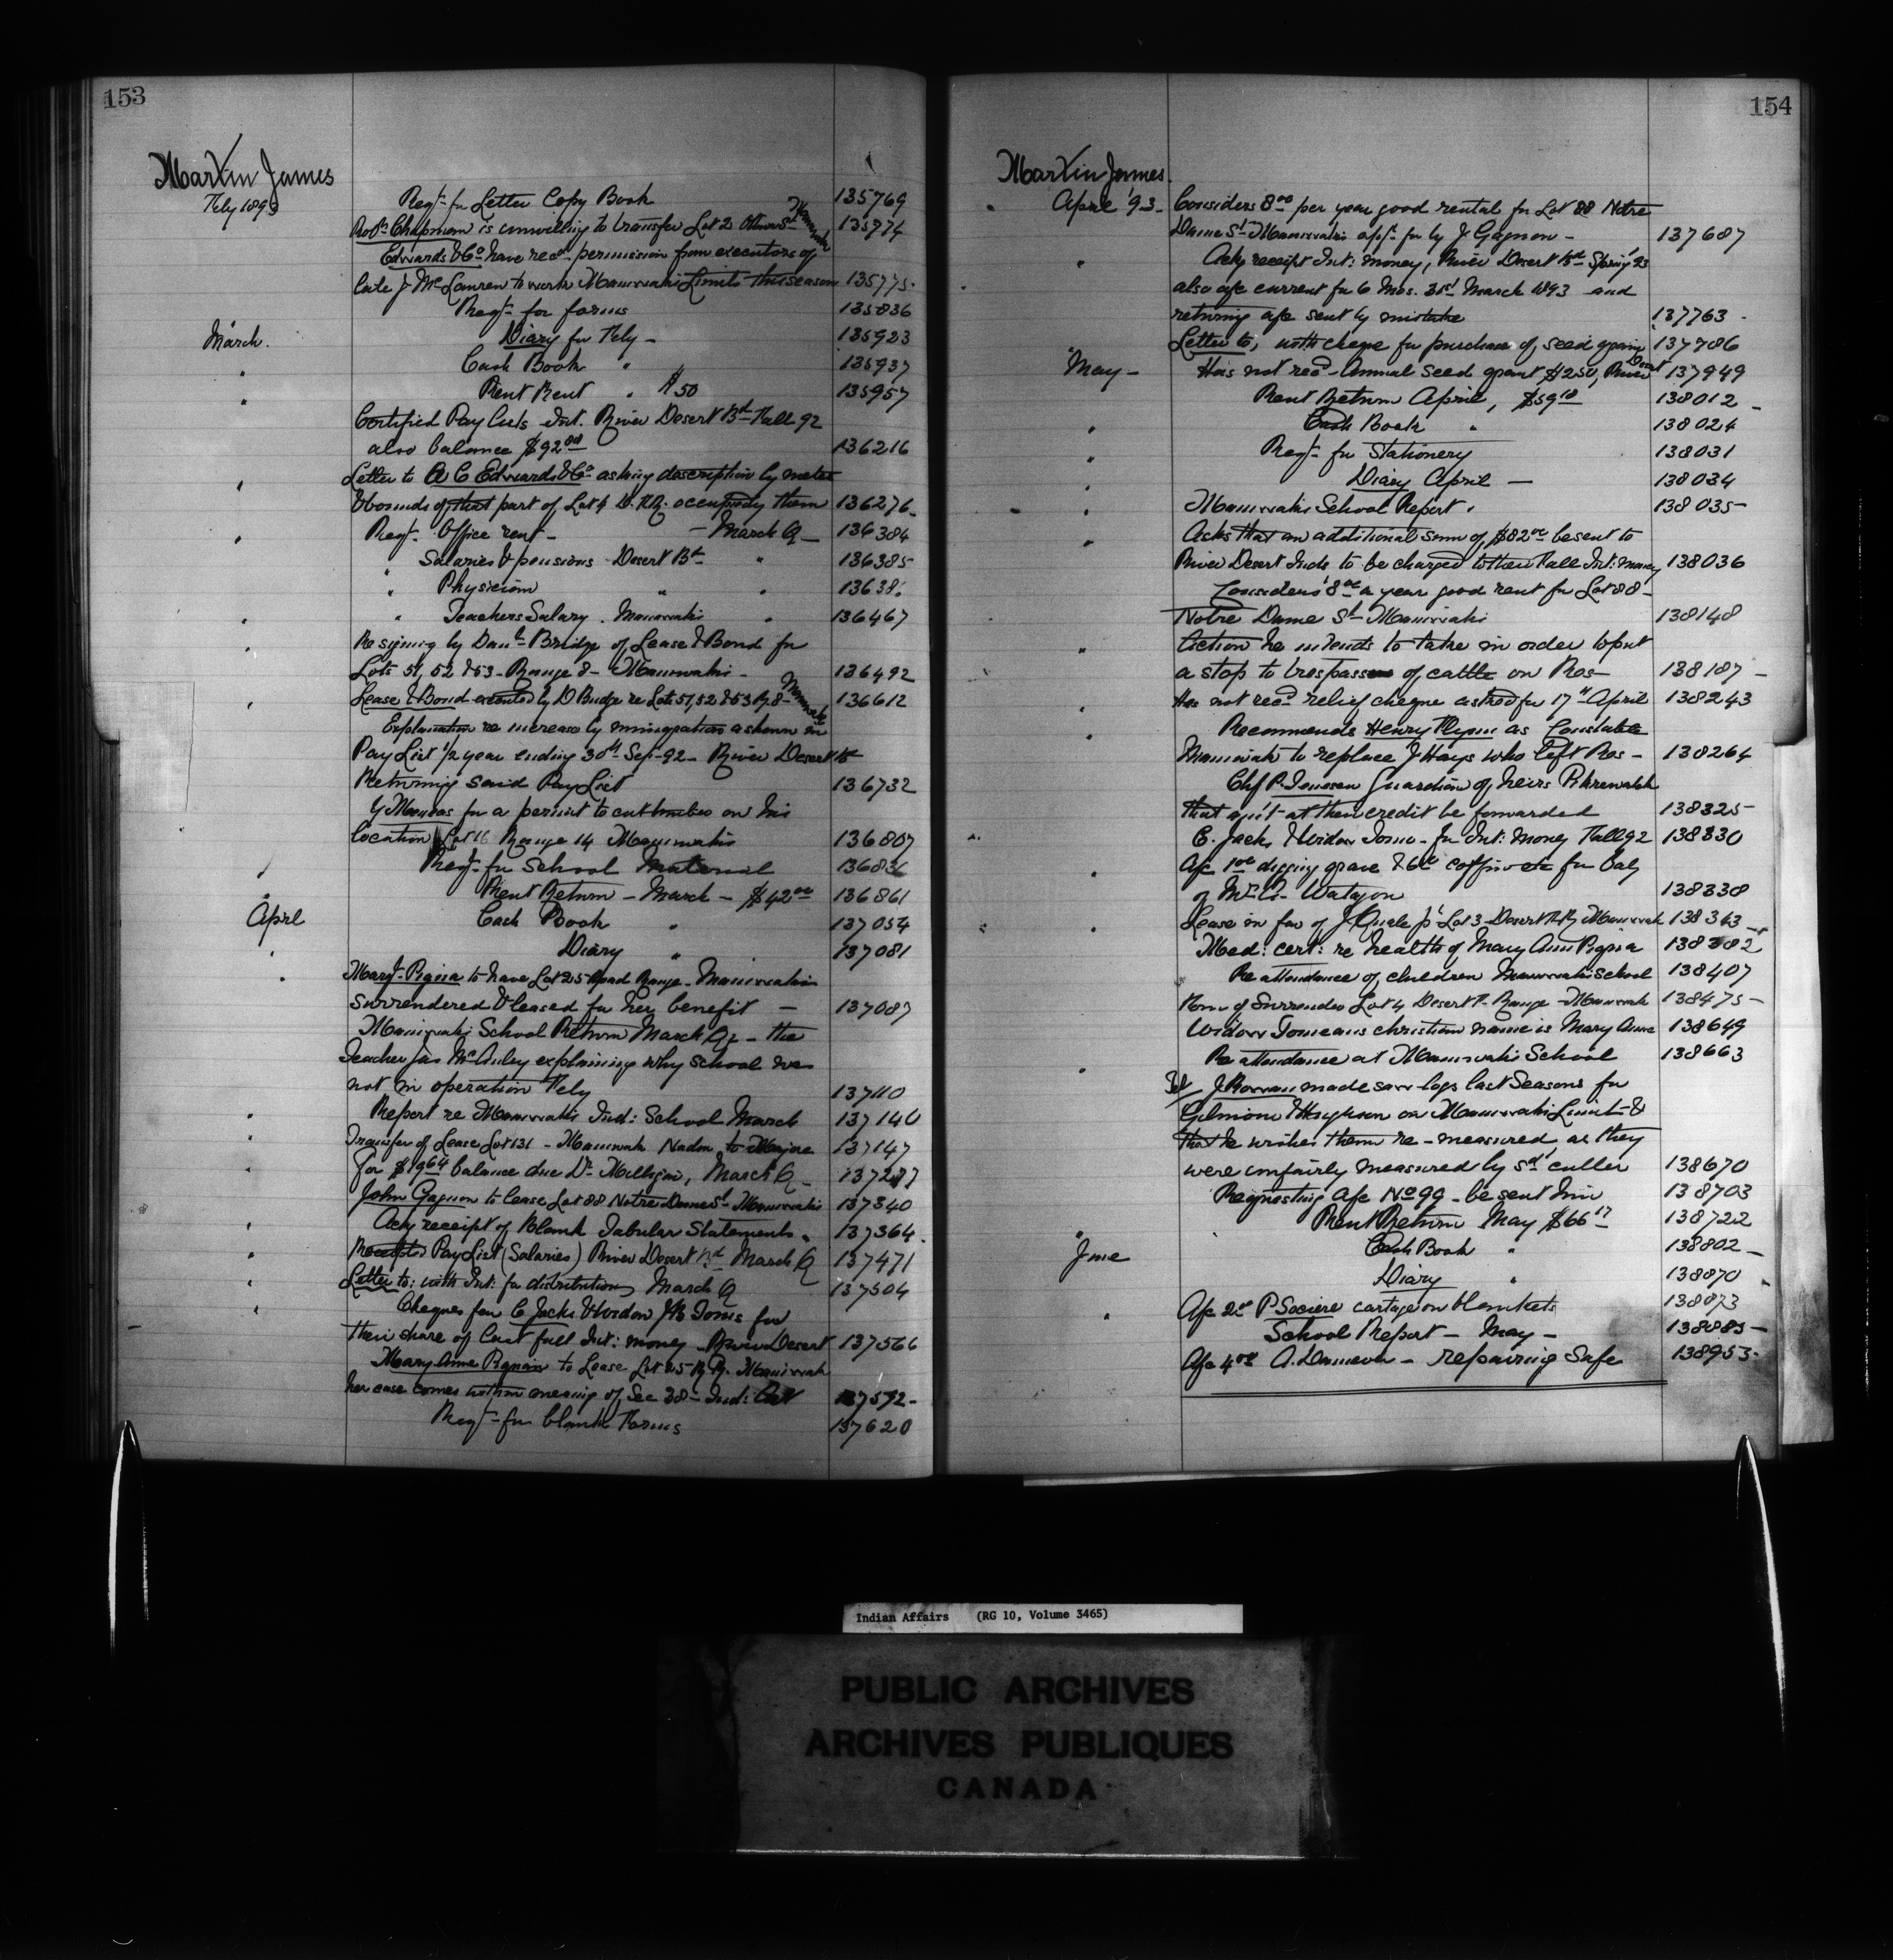 153
Martin James
Feby 1893
Reqt for Letter Copy Book 135769
Robt Chapman is unwilling to transfer Lot 2 Ottawa St Maniwaki 135774
Edwards & Co have recd permission from executors of
late J McLaren to work Maniwaki Limits this season 135775
Reqt for forms 135836
March. Diary for Feby - 135923
" Cash Book " 135937
" Rent Rent " $50 135957
Certified Pay Lists Int. River Desert Bd Fall 92
also balance $92 136216
Letter to W C Edwards & Co asking description by metes
& bounds of that part of Lot 4 D. R.R. occupied by them 136276
" Reqt Office rent - - March Q - 136384
" Salaries & pensions Desert Bd " 136385
" Physician " " 13638
" Teachers Salary. Maniwaki " 136467
" Re signing by Danl Bridge of Lease & Bond for
Lots 51, 52 & 53 - Range 8 - Maniwaki - 136492
" Lease & Bond executed by D Budge re Lots 51, 52 & 53 Rg 8 - Maniwaki 136612
Explanation re increase by immigration as shown in
Pay List 1/2 year ending 30th Sep - 92 - River Desert Bd
Returning said Pay List 136732
for a permit to cut timber on his
location Lot 16 Range 14 Maniwaki 136807
Reqt for School Material 136836
" Rent Return - March - $42 00 136861
April Cash Book " 137054
" Diary " 137081
" Maryt Pigna to have Lot 25 Road Range - Maniwaki
surrendered & leased for her benefit - 137087
Maniwaki School Return March Qr - the
Teacher Jas McAuley explaining why school was
not in operation Feby 137110
" Report re Maniwaki Ind: School March 137140
" Transfer of Lease Lot 131 - Maniwaki Nadon to Major 137147
" For $19 64 balance due Dr Milligan, March Q - 137287
John Gagnon to lease Lot 88 Notre Dame St Maniwaki 137340
" Ackg receipt of Blank Tabular Statements " 137364
" Receipted Pay List (Salaries) River Desert Bd March Q 137471
" Letter to: with Int: for distribution March Q 137504
" Cheques for C Jacks & Widow Jno Tomo for
their share of last fall Int: money River Desert 137566
Mary Anne Pignan to Lease Lot 25 R Rg. Maniwaki
her case comes within meaning of Sec 38 - Ind: Act 137592 -
Reqt for blank Forms 137620
154
Martin James.
April '93 - Considers 8 00 per year good rental for Lot 88 Notre
Dame St Maniwaki apt for by J Gagnon - 137687
" Ackg receipt Int: money, River Desert Bd Spring 93
also a/c current for 6 Mos. 31st March 1893 and
returning a/c sent by mistake 137763
Letter to, with cheque for purchase of seed grain 137786
May - Has not recd Annual Seed grant $250, River Desert 137949
Rent Return April, $59 10 138012
" Cash Book " 138024
" Reqt for Stationery 138031
" Diary April - 138034
" Maniwaki School Report " 138035
" Asks that an additional sum of $82 00 be sent to
River Desert Inds to be charged to their Fall Int: money 138036
Considers 8 00 a year good rent for Lot 88 -
Notre Dame St Maniwaki 138148
" Action he intends to take in order to put
a stop to trespass of cattle on Res - 138187
" Has not recd relief cheque asked for 17th April 138243
" Recommends Henry Flynn as Constable
Maniwaki to replace J Hays who left Res - 138264
Chf P Guardian of heirs
that amt at their credit be forwarded 138325
C. Jacks & Widow Tomo - for Int: money Fall 92 138330
" A/c 1 00 digging grave & 6 00 coffin etc for
of Mrs Watagon 138338
" Lease in fav of J Quale jr Lot 3 Desert R Rg Maniwaki 138343
Med: cert: re health of Mary Ann Pigna 138382
Re attendance of children Maniwaki School 138407
Form of Surrender Lot 4 Desert R. Range - Maniwaki 138475 -
Widow christian name is Mary Anne 138649
" Re attendance at Maniwaki School 138663
J made saw logs last Seasons for
Gilmour & Hughson on Maniwaki Limit - &
that he wishes them re-measured, as they
were unfairly measured by sd culler 138670
Requesting a/c No 99 - be sent him 138703
" Rent Return May $66 17 138722
June Cash Book " 138802
Diary " 138870
" A/c 2 00 P cartage on blankets 138873
School Report - May - 138885 -
A/c 4 00 A. - repairing Safe 138953
Indian Affairs (RG 10, Volume 3465)
PUBLIC ARCHIVES
ARCHIVES PUBLIQUES
CANADA